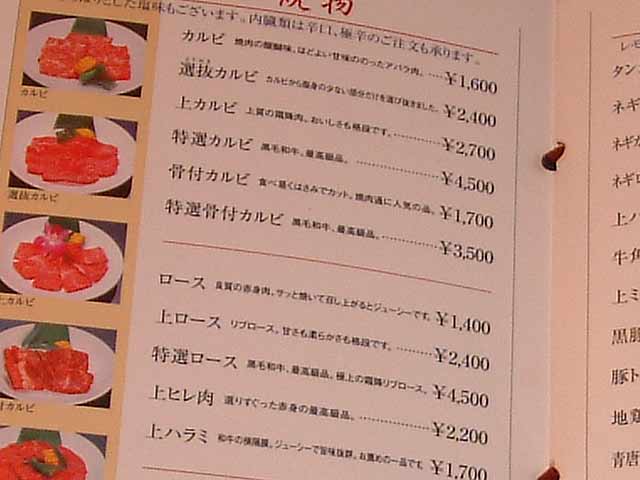 焼物
とした塩味もございます。内臓類は辛口、極辛のご注文も承ります。
カルビ 焼肉の醍醐味、ほどよい甘味ののったアバラ肉。 ¥1,600
選抜カルビ カルビから脂身の少ない部分だけを選び抜きました。 ¥2,400
上カルビ 上質の霜降肉。おいしさも格段です。 ¥2,700
特選カルビ 黒毛和牛、最高級品。 ¥4,500
骨付カルビ 食べ易くはさみでカット。焼肉通に人気の品。 ¥1,700
特選骨付カルビ 黒毛和牛、最高級品。 ¥3,500
ロース 良質の赤身肉。サッと焼いて召し上がるとジューシーです。 ¥1,400
上ロース リブロース。甘さも柔らかさも格段です。 ¥2,400
特選ロース 黒毛和牛、最高級品。極上の霜降リブロース。 ¥4,500
上ヒレ肉 選りすぐった赤身の最高級品。 ¥2,200
上ハラミ 和牛の横隔膜。ジューシーで旨味抜群。お薦めの一品です。 ¥1,700
カルビ
選抜カルビ
上カルビ
付カルビ
レモ
タン
ネギ
ネギカ
ネギロ
上ハ
牛角
上ミ
黒豚
豚ト
地鶏
青唐